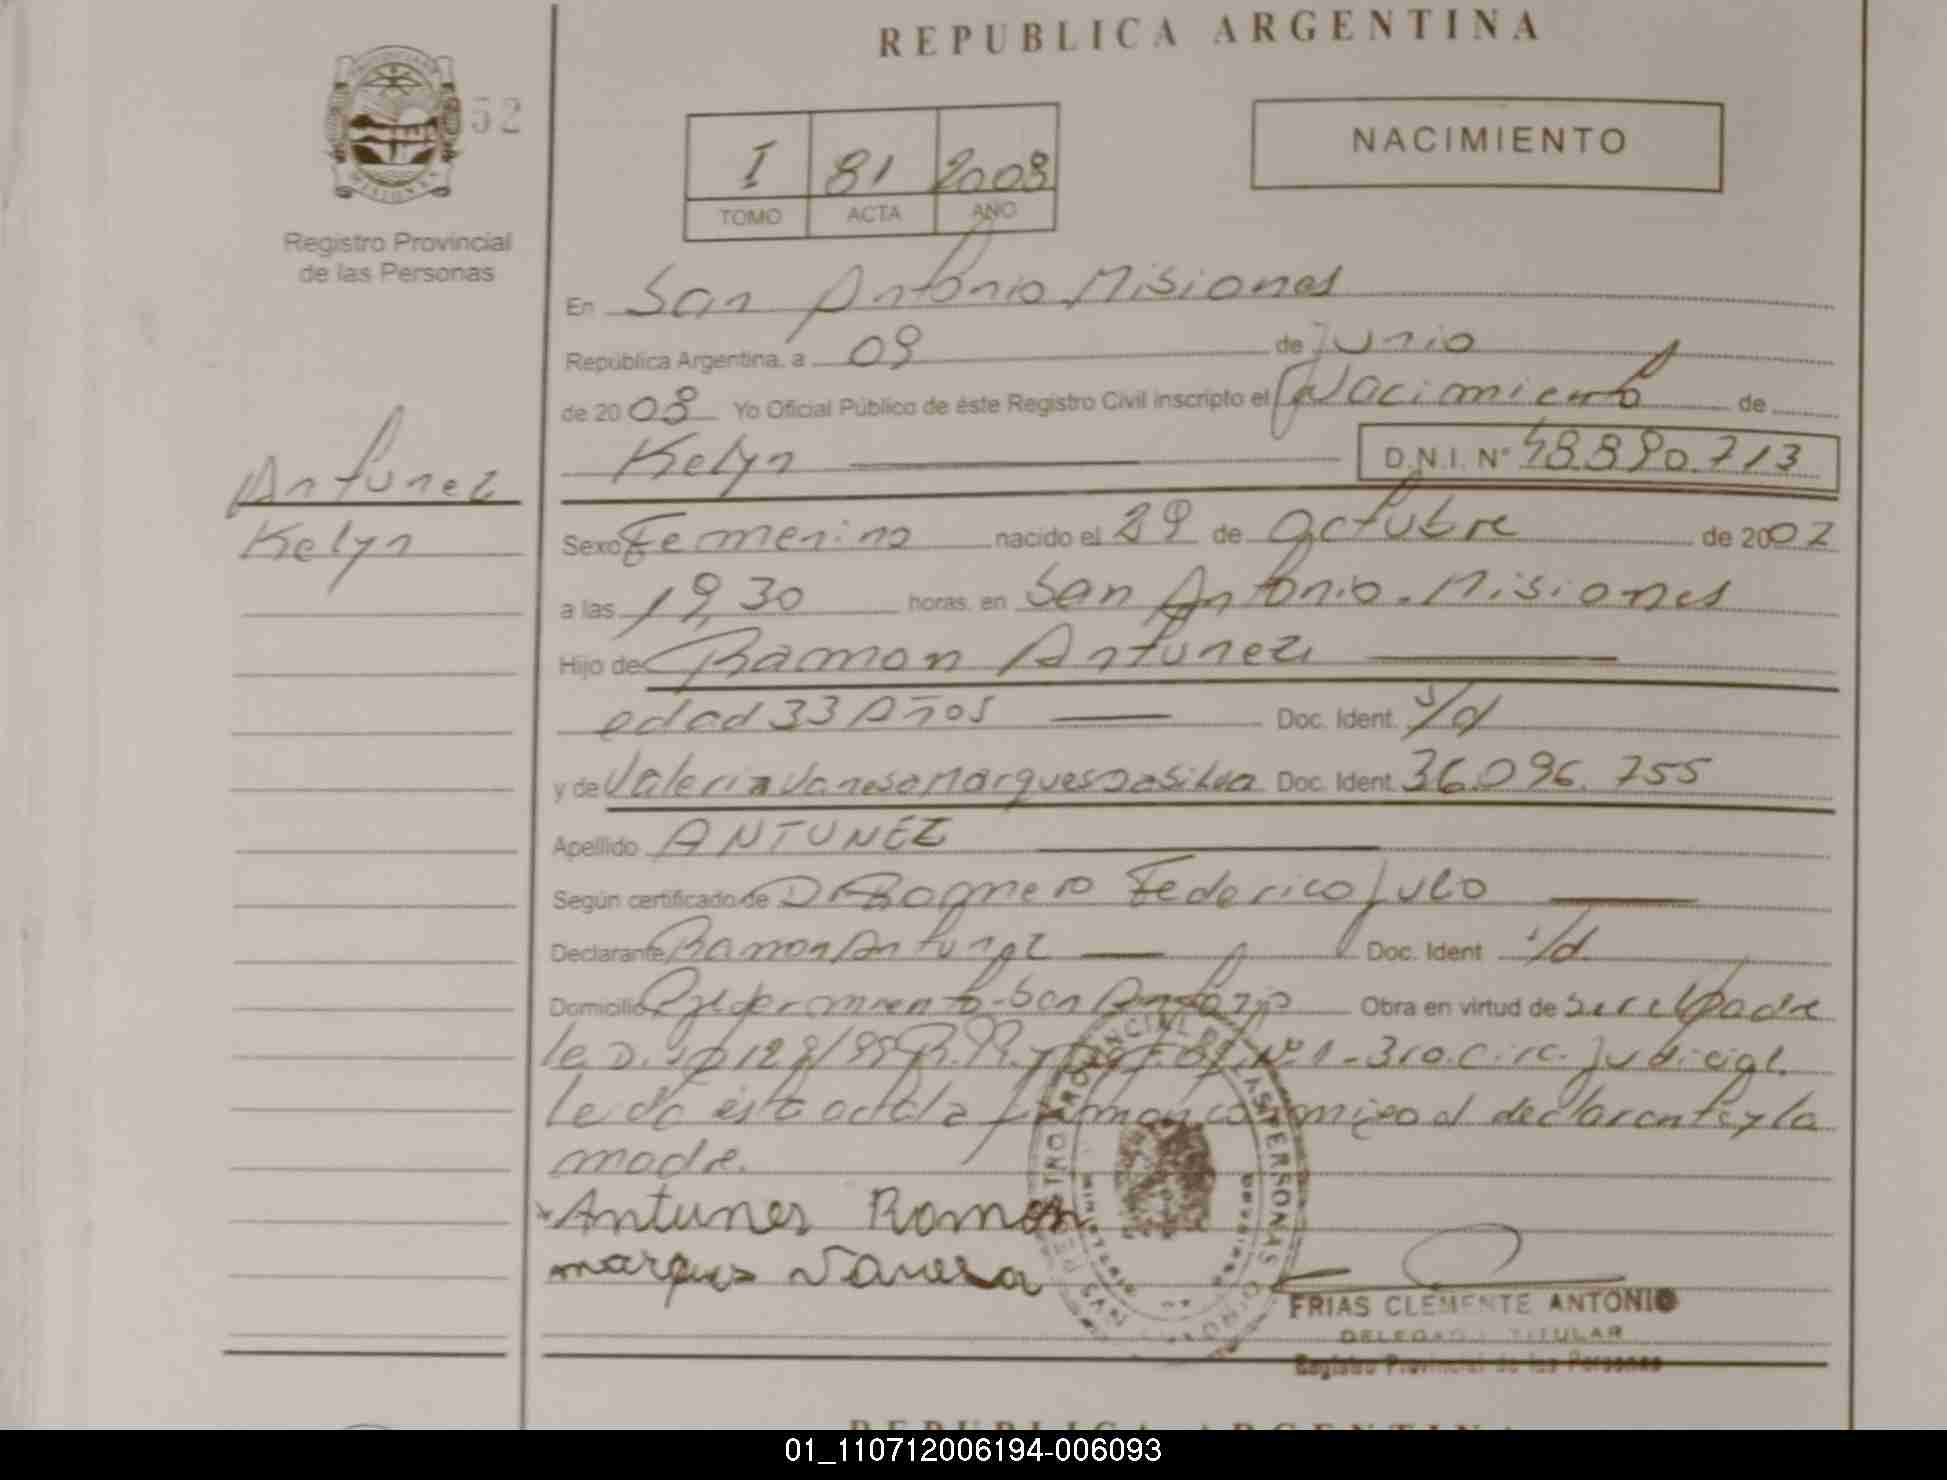 REPUBLICA ARGENTINA
52
NACIMIENTO
I 81 2008
TOMO ACTA AÑO
Registro Provincial
de las Personas
En San Antonio Misiones
República Argentina, a 09 de Junio
de 2008 Yo Oficial Público de éste Registro Civil inscripto el Nacimiento de
Kelyn D.N.I. Nº 48.890.713
Antunez
Kelyn
Sexo Femenino nacido el 29 de Octubre de 2002
a las 19,30 horas, en San Antonio. Misiones
Hijo de Ramon Antunez
edad 33 Años Doc. Ident. s/d
y de Valeria Vanesa Marques Da Silva Doc. Ident. 36.096.755
Apellido ANTUNEZ
Según certificado de DR Romero Federico Julio
Declarante Ramon Antunez Doc. Ident s/d.
Domicilio San Antonio Obra en virtud de ser el padre
Nº 1 - 3ra. Circ. Judicial.
Leida esta acta la firman conmigo el declarante y la
madre.
Antunes Ramon
marques Vanesa
FRIAS CLEMENTE ANTONIO
DELEGADO TITULAR
Registro Provincial de las Personas
REPUBLICA ARGENTINA
01_110712006194-006093